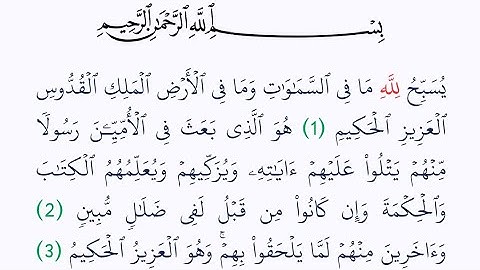 بِسْمِ اللَّهِ الرَّحْمَٰنِ الرَّحِيمِ
يُسَبِّحُ لِلَّهِ مَا فِى السَّمَٰوَٰتِ وَمَا فِى الْأَرْضِ الْمَلِكِ الْقُدُّوسِ
الْعَزِيزِ الْحَكِيمِ (1) هُوَ الَّذِى بَعَثَ فِى الْأُمِّيِّـۧنَ رَسُولًا
مِّنْهُمْ يَتْلُوا۟ عَلَيْهِمْ ءَايَٰتِهِۦ وَيُزَكِّيهِمْ وَيُعَلِّمُهُمُ الْكِتَٰبَ
وَالْحِكْمَةَ وَإِن كَانُوا۟ مِن قَبْلُ لَفِى ضَلَٰلٍ مُّبِينٍ (2)
وَءَاخَرِينَ مِنْهُمْ لَمَّا يَلْحَقُوا۟ بِهِمْ ۚ وَهُوَ الْعَزِيزُ الْحَكِيمُ (3)